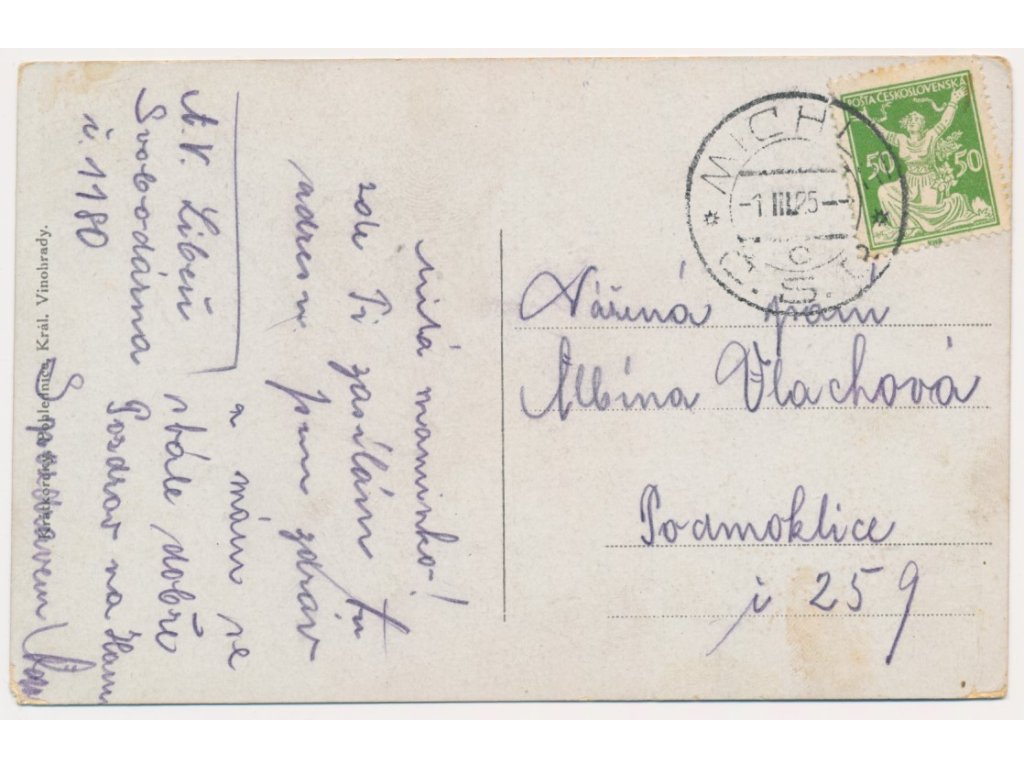 milá maminko!
zde Ti zasílám tu
adresu. jsem zdráv
a mám se
stále dobře
Pozdrav na
N. V. Libeň
Svobodárna
č. 1180
Král. Vinohrady.
POŠTA ČESKOSLOVENSKÁ
50 50
-1 III.25-
Č. S.
Vážená paní
Albína Vlachová
Podmoklice
č 259